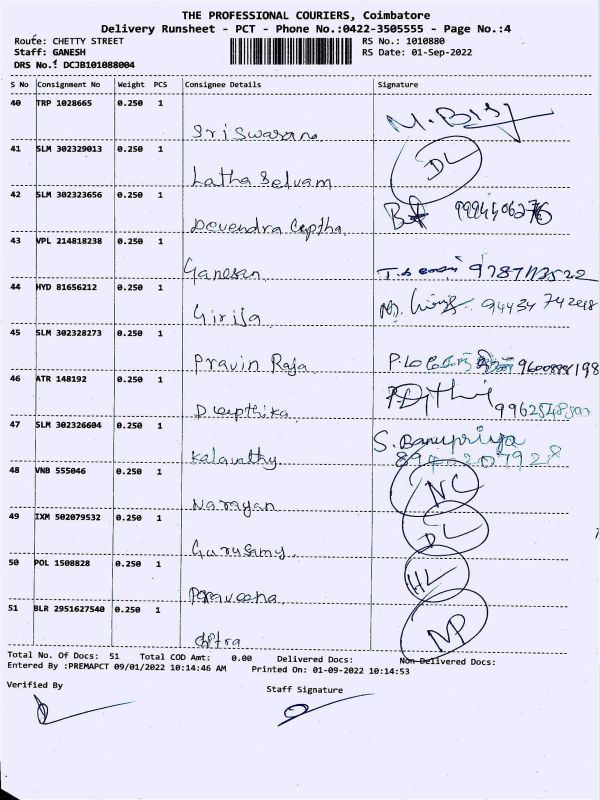 THE PROFESSIONAL COURIERS, Coimbatore
Delivery Runsheet - PCT - Phone No.:0422-3505555 - Page No.:4
Route: CHETTY STREET RS No.: 1010880
Staff: GANESH RS Date: 01-Sep-2022
DRS No.: DCJB101088004
S No Consignment No Weight PCS Consignee Details Signature
40 TRP 1028665 0.250 1
Sri Swarana
41 SLM 302329013 0.250 1 DL
Latha Selvam
42 SLM 302323656 0.250 1
Devendra Guptha
43 VPL 214818238 0.250 1
Ganesan
44 HYD 81656212 0.250 1
Girija
45 SLM 302328273 0.250 1
Pravin Raja
46 ATR 148192 0.250 1
Deepthika
47 SLM 302326604 0.250 1 S. Banupriya
Kalavathy
48 VNB 555046 0.250 1 NC
Narayan
49 IXM 502079532 0.250 1 DL
Gurusamy
50 POL 1508828 0.250 1 HL
Praveena
51 BLR 2951627540 0.250 1 NP
Chitra
Total No. Of Docs: 51 Total COD Amt: 0.00 Delivered Docs: Non Delivered Docs:
Entered By :PREMAPCT 09/01/2022 10:14:46 AM Printed On: 01-09-2022 10:14:53
Verified By Staff Signature